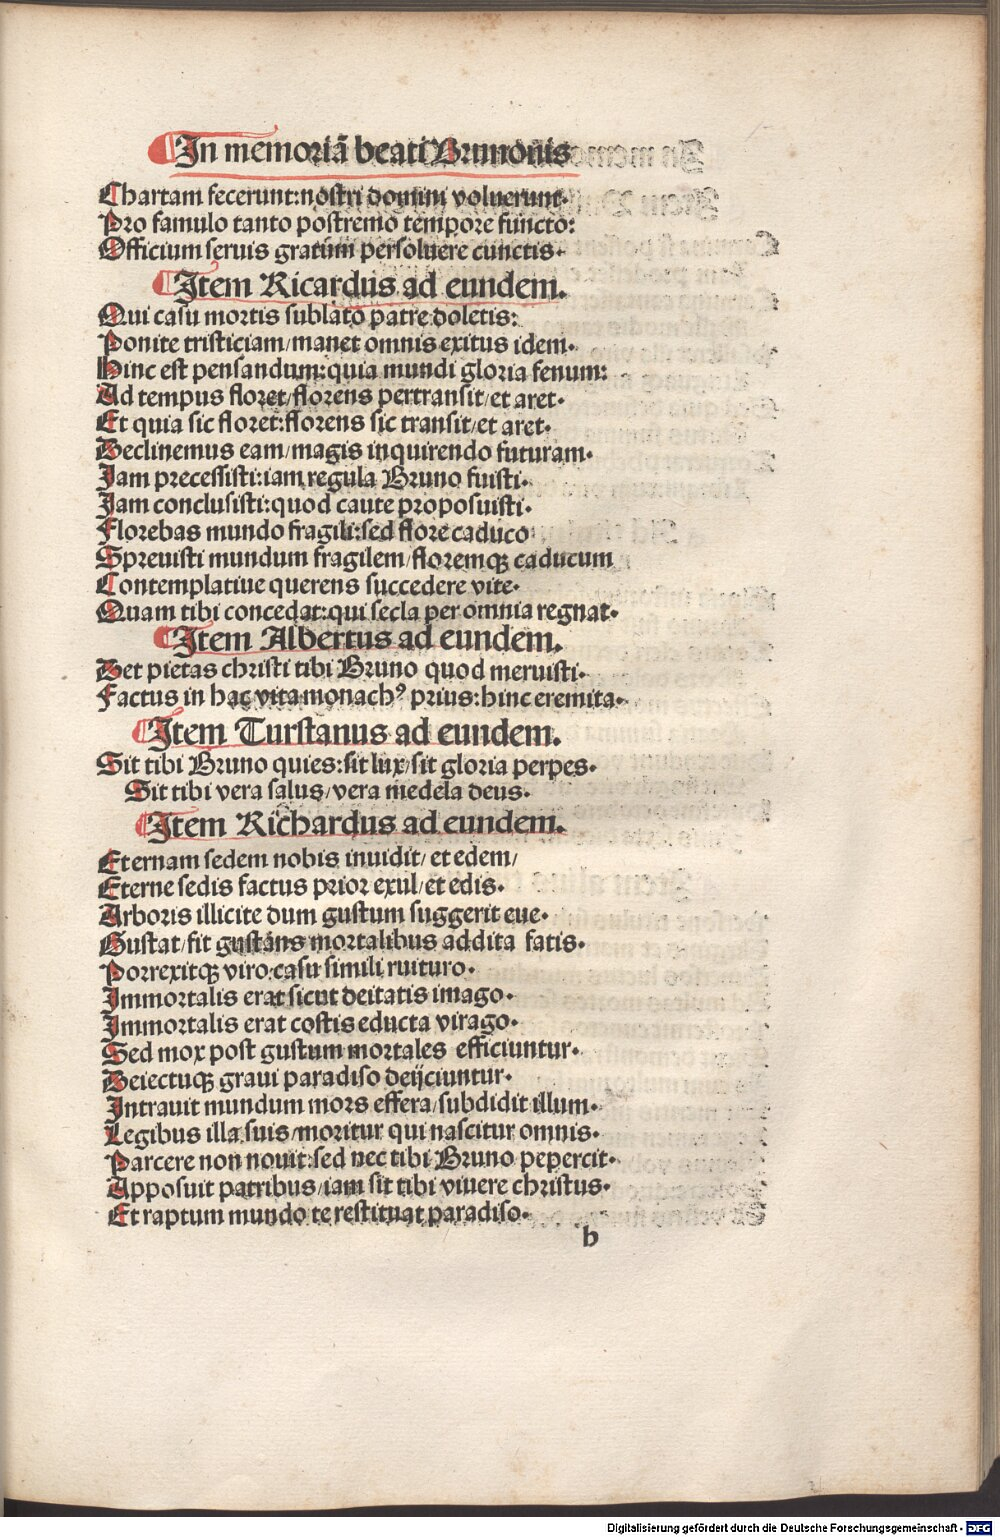 In memoriā beati Brunonis
Chartam fecerunt:nostri domini voluerunt.
Pro famulo tanto postremo tempore functo:
Officium seruis gratum persoluere cunctis.
Item Ricardus ad eundem.
Qui casu mortis sublato patre doletis:
Ponite tristiciam/manet omnis exitus idem.
Hinc est pensandum:quia mundi gloria fenum:
Ad tempus floret/florens pertransit/et aret.
Et quia sic floret:florens sic transit/et aret.
Declinemus eam/magis inquirendo futuram.
Jam precessisti:iam regula Bruno fuisti.
Jam conclusisti:quod caute proposuisti.
Florebas mundo fragili:sed flore caduco
Spreuisti mundum fragilem/floremqȝ caducum
Contemplatiue querens succedere vite.
Quam tibi concedat:qui secla per omnia regnat.
Item Albertus ad eundem.
Det pietas christi tibi Bruno quod meruisti.
Factus in hac vita monachꝰ prius:hinc eremita.
Item Turstanus ad eundem.
Sit tibi Bruno quies:sit lux/sit gloria perpes.
Sit tibi vera salus/vera medela deus.
Item Richardus ad eundem.
Eternam sedem nobis inuidit/et edem/
Eterne sedis factus prior exul/et edis.
Arboris illicite dum gustum suggerit eue.
Gustat/fit gustans mortalibus addita fatis.
Porrexitqȝ viro:casu simili ruituro.
Immortalis erat sicut deitatis imago.
Immortalis erat costis educta virago.
Sed mox post gustum mortales efficiuntur.
Deiectuqȝ graui paradiso deijciuntur.
Intrauit mundum mors effera/subdidit illum.
Legibus illa suis/moritur qui nascitur omnis.
Parcere non nouit:sed nec tibi Bruno pepercit.
Apposuit patribus/iam sit tibi viuere christus.
Et raptum mundo te restituat paradiso.
b
Digitalisierung gefördert durch die Deutsche Forschungsgemeinschaft - DFG